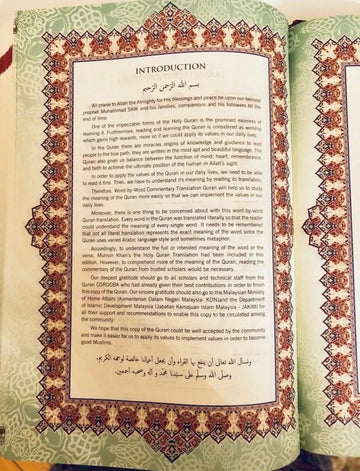 INTRODUCTION
بسم الله الرحمن الرحيم
All praise to Allah the Almighty for His blessings and peace be upon our beloved
prophet Muhammad SAW and his families, companions and his followers till the
end of time.
One of the impeccable forms of the Holy Quran is the promised easiness of
learning it. Furthermore, reading and learning the Quran is considered as worship
which gains high rewards, more so if we could apply its values in our daily lives.
In the Quran there are miracles origins of knowledge and guidance to lead
people to the true path, they are written in the most apt and beautiful language. The
Quran also gives us balance between the function of mind, heart, remembrance,
and faith to achieve the ultimate position of the human in Allah's sight.
In order to apply the values of the Quran in our daily lives, we need to be able
to read it first. Then, we have to understand it's meaning by reading its translation.
Therefore, Word by Word Commentary Translation Quran will help us to study
the meaning of the Quran more easily so that we can implement the values in our
daily lives.
Moreover, there is one thing to be concerned about with this word-by-word
Quran translation. Every word in the Quran was translated literally so that the reader
could understand the meaning of every single word. It needs to be remembered
that not all literal translation represents the exact meaning of the word since the
Quran uses varied Arabic language style and sometimes metaphor.
Accordingly, to understand the full or intended meaning of the word or the
verse, Muhsin Khan's the Holy Quran Translation had been included in this
edition. However, to comprehend more of the meaning of the Quran, reading the
commentary of the Quran from trusted scholars would be necessary.
Our deepest gratitude should go to all scholars and technical staff from the
Quran CORDOBA who had already given their best contributions in order to finish
this copy of the Quran. Our sincere gratitude should also go to the Malaysian Ministry
of Home Affairs (Kementerian Dalam Negeri Malaysia- KDN)and the Department
of Islamic Development Malaysia (Jabatan Kemajuan Islam Malaysia - JAKIM) for
all their support and recommendations to enable this copy to be circulated among
the community.
We hope that this copy of the Quran could be well accepted by the community
and make it easier for us to apply its values to implement values in order to become
good Muslims.
ونسأل الله تعالى أن ينفع بها القراء وأن يجعل أعمالنا خالصة لوجهه الكريم.
وصلى الله وسلم على سيدنا محمد و آله وصحبه أجمعين.